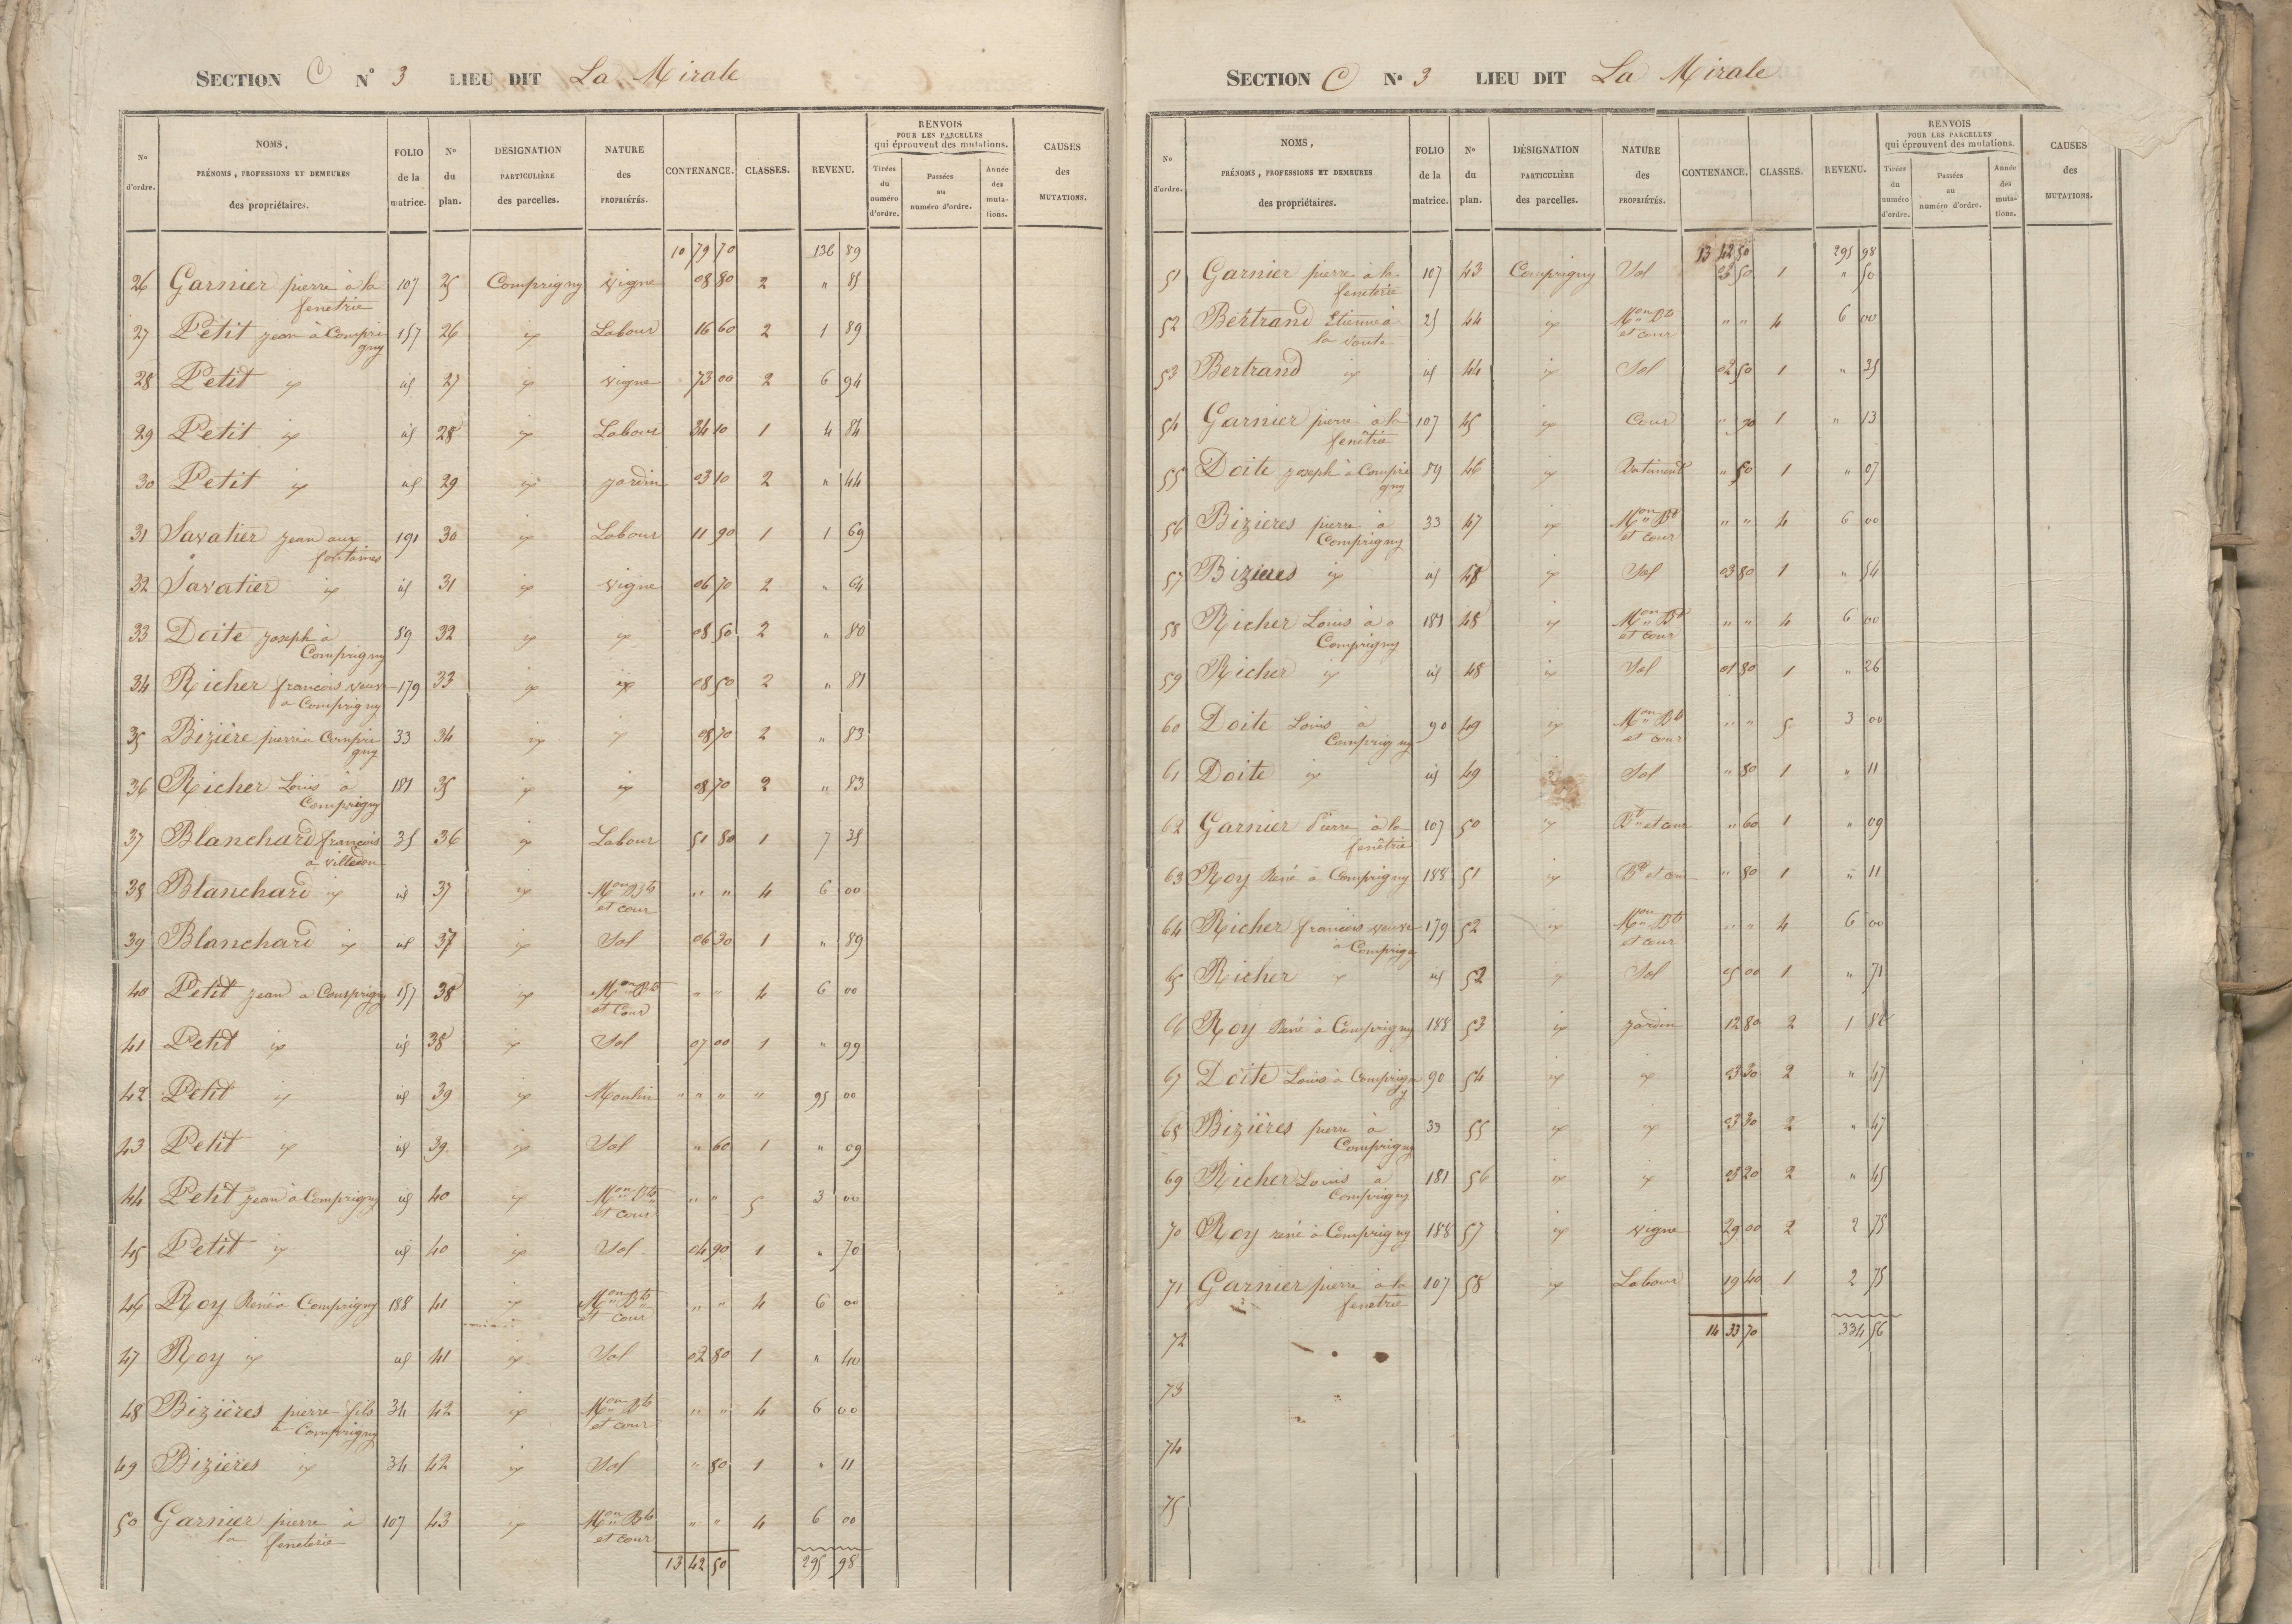 SECTION C N° 3 LIEU DIT La Mirale
N° d'ordre. NOMS, PRÉNOMS, PROFESSIONS ET DEMEURES des propriétaires. FOLIO de la matrice. N° du plan. DÉSIGNATION PARTICULIÈRE des parcelles. NATURE des PROPRIÉTÉS. CONTENANCE. CLASSES. REVENU. RENVOIS POUR LES PARCELLES qui éprouvent des mutations. Tirées du numéro d'ordre. Passées au numéro d'ordre. Année des mutations. CAUSES des MUTATIONS.
10 79 70 136 89
26 Garnier pierre à la 107 25 Comprigny vigne 08 80 2 " 85
fenetrie
27 Petit jean à Compri 157 26 id Labour 16 60 2 1 89
gny
28 Petit id id 27 id vigne 73 00 2 6 94
29 Petit id id 28 id Labour 34 10 1 4 84
30 Petit id id 29 id jardin 03 10 2 " 44
31 Savatier jean aux 191 30 id Labour 11 90 1 1 69
fontaines
32 Savatier id id 31 id vigne 06 70 2 " 64
33 Doite joseph à 89 32 id id 08 50 2 " 80
Comprigny
34 Richer francois veuve 179 33 id id 08 50 2 " 81
a Comprigny
35 Bizière pierre à Compri 33 34 id id 08 70 2 " 83
gny
36 Richer Louis à 181 35 id id 08 70 2 " 83
Comprigny
37 Blanchard françois 35 36 id Labour 51 80 1 7 35
a villedon
38 Blanchard id id 37 id Mon Bts " " 4 6 00
et cour
39 Blanchard id id 37 id Sol 06 30 1 " 89
40 Petit jean a Comprigny 157 38 id Mon Bts " " 4 6 00
et Cour
41 Petit id id 38 id Sol 07 00 1 " 99
42 Petit id id 39 id Moulin " " " " 95 00
43 Petit id id 39 id Sol " 60 1 " 09
44 Petit jean à Comprigny id 40 id Mon Bts " " 5 3 00
et cour
45 Petit id id 40 id Sol 04 90 1 " 70
46 Roy René à Comprigny 188 41 id Mon Bts " " 4 6 00
et cour
47 Roy id id 41 id Sol 02 80 1 " 40
48 Bizières pierre fils 34 42 id Mon Bts " " 4 6 00
a Comprigny et cour
49 Bizières id 34 42 id Sol " 80 1 " 11
50 Garnier pierre à 107 43 id Mon Bts " " 4 6 00
la feneterie et cour
13 42 50 295 98
SECTION C N° 3 LIEU DIT La Mirale
N° d'ordre. NOMS, PRÉNOMS, PROFESSIONS ET DEMEURES des propriétaires. FOLIO de la matrice. N° du plan. DÉSIGNATION PARTICULIÈRE des parcelles. NATURE des PROPRIÉTÉS. CONTENANCE. CLASSES. REVENU. RENVOIS POUR LES PARCELLES qui éprouvent des mutations. Tirées du numéro d'ordre. Passées au numéro d'ordre. Année des mutations. CAUSES des MUTATIONS.
13 42 50 295 98
51 Garnier pierre à la 107 43 Comprigny Sol 50 1 " 50
feneterie
52 Bertrand Etienne à 25 44 id Mon Bts " " 4 6 00
la voute et cour
53 Bertrand id id 44 id Sol 02 50 1 " 35
54 Garnier pierre à la 107 45 id Cour " 90 1 " 13
fenêtrie
55 Doite joseph à Compri 89 46 id Batiment " 50 1 " 07
gny
56 Bizieres pierre à 33 47 id Mon Bt " " 4 6 00
Comprigny et cour
57 Bizieres id id 47 id Sol 03 80 1 " 54
58 Richer Louis à 181 48 id Mon Bt " " 4 6 00
Comprigny et cour
59 Richer id id 48 id Sol 01 80 1 " 26
60 Doite Louis à 90 49 id Mon Bt " " 5 3 00
Comprigny et cour
61 Doite id id 49 id Sol " 80 1 " 11
62 Garnier Pierre à la 107 50 id Bt et cour " 60 1 " 09
fenêtrie
63 Roy René à Comprigny 188 51 id Bt et cour " 80 1 " 11
64 Richer francois veuve 179 52 id Mon Bt " " 4 6 00
à Comprign et cour
65 Richer id id 52 id Sol 05 00 1 " 71
66 Roy René à Comprigny 188 53 id jardin 12 80 2 1 82
67 Doite Louis à Comprign 90 54 id id 03 30 2 " 47
y
68 Bizières pierre à 33 55 id id 03 30 2 " 47
Comprigny
69 Richer Louis à 181 56 id id 03 20 2 " 45
Comprigny
70 Roy rené à Comprigny 188 57 id vigne 29 00 2 2 75
71 Garnier pierre à la 107 58 id Labour 19 40 1 2 75
fenetrie
14 33 70 334 56
72
73
74
75